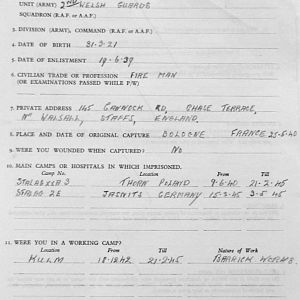 UNIT (ARMY) 2ND WELSH GUARDS
SQUADRON (R.A.F. or A.A.F.)
3. DIVISION (ARMY), COMMAND (R.A.F. or A.A.F.)
4. DATE OF BIRTH 31-3-21
5. DATE OF ENLISTMENT 19-6-39
6. CIVILIAN TRADE OR PROFESSION FIRE MAN
(OR EXAMINATIONS PASSED WHILE P/W)
7. PRIVATE ADDRESS 145 CANNOCK RD, CHASE TERRACE,
Nr WALSALL, STAFFS, ENGLAND.
8. PLACE AND DATE OF ORIGINAL CAPTURE BOLOGNE FRANCE 25-5-40
9. WERE YOU WOUNDED WHEN CAPTURED? No
10. MAIN CAMPS OR HOSPITALS IN WHICH IMPRISONED.
Camp No. Location From Till
THORN POLAND 9-6-40 21-2-45
STALAG 2E GERMANY 15-3-45 3-5-45
11. WERE YOU IN A WORKING CAMP?
Location From Till Nature of Work
KULM 18-12-42 21-2-45 BARRICK WORKS